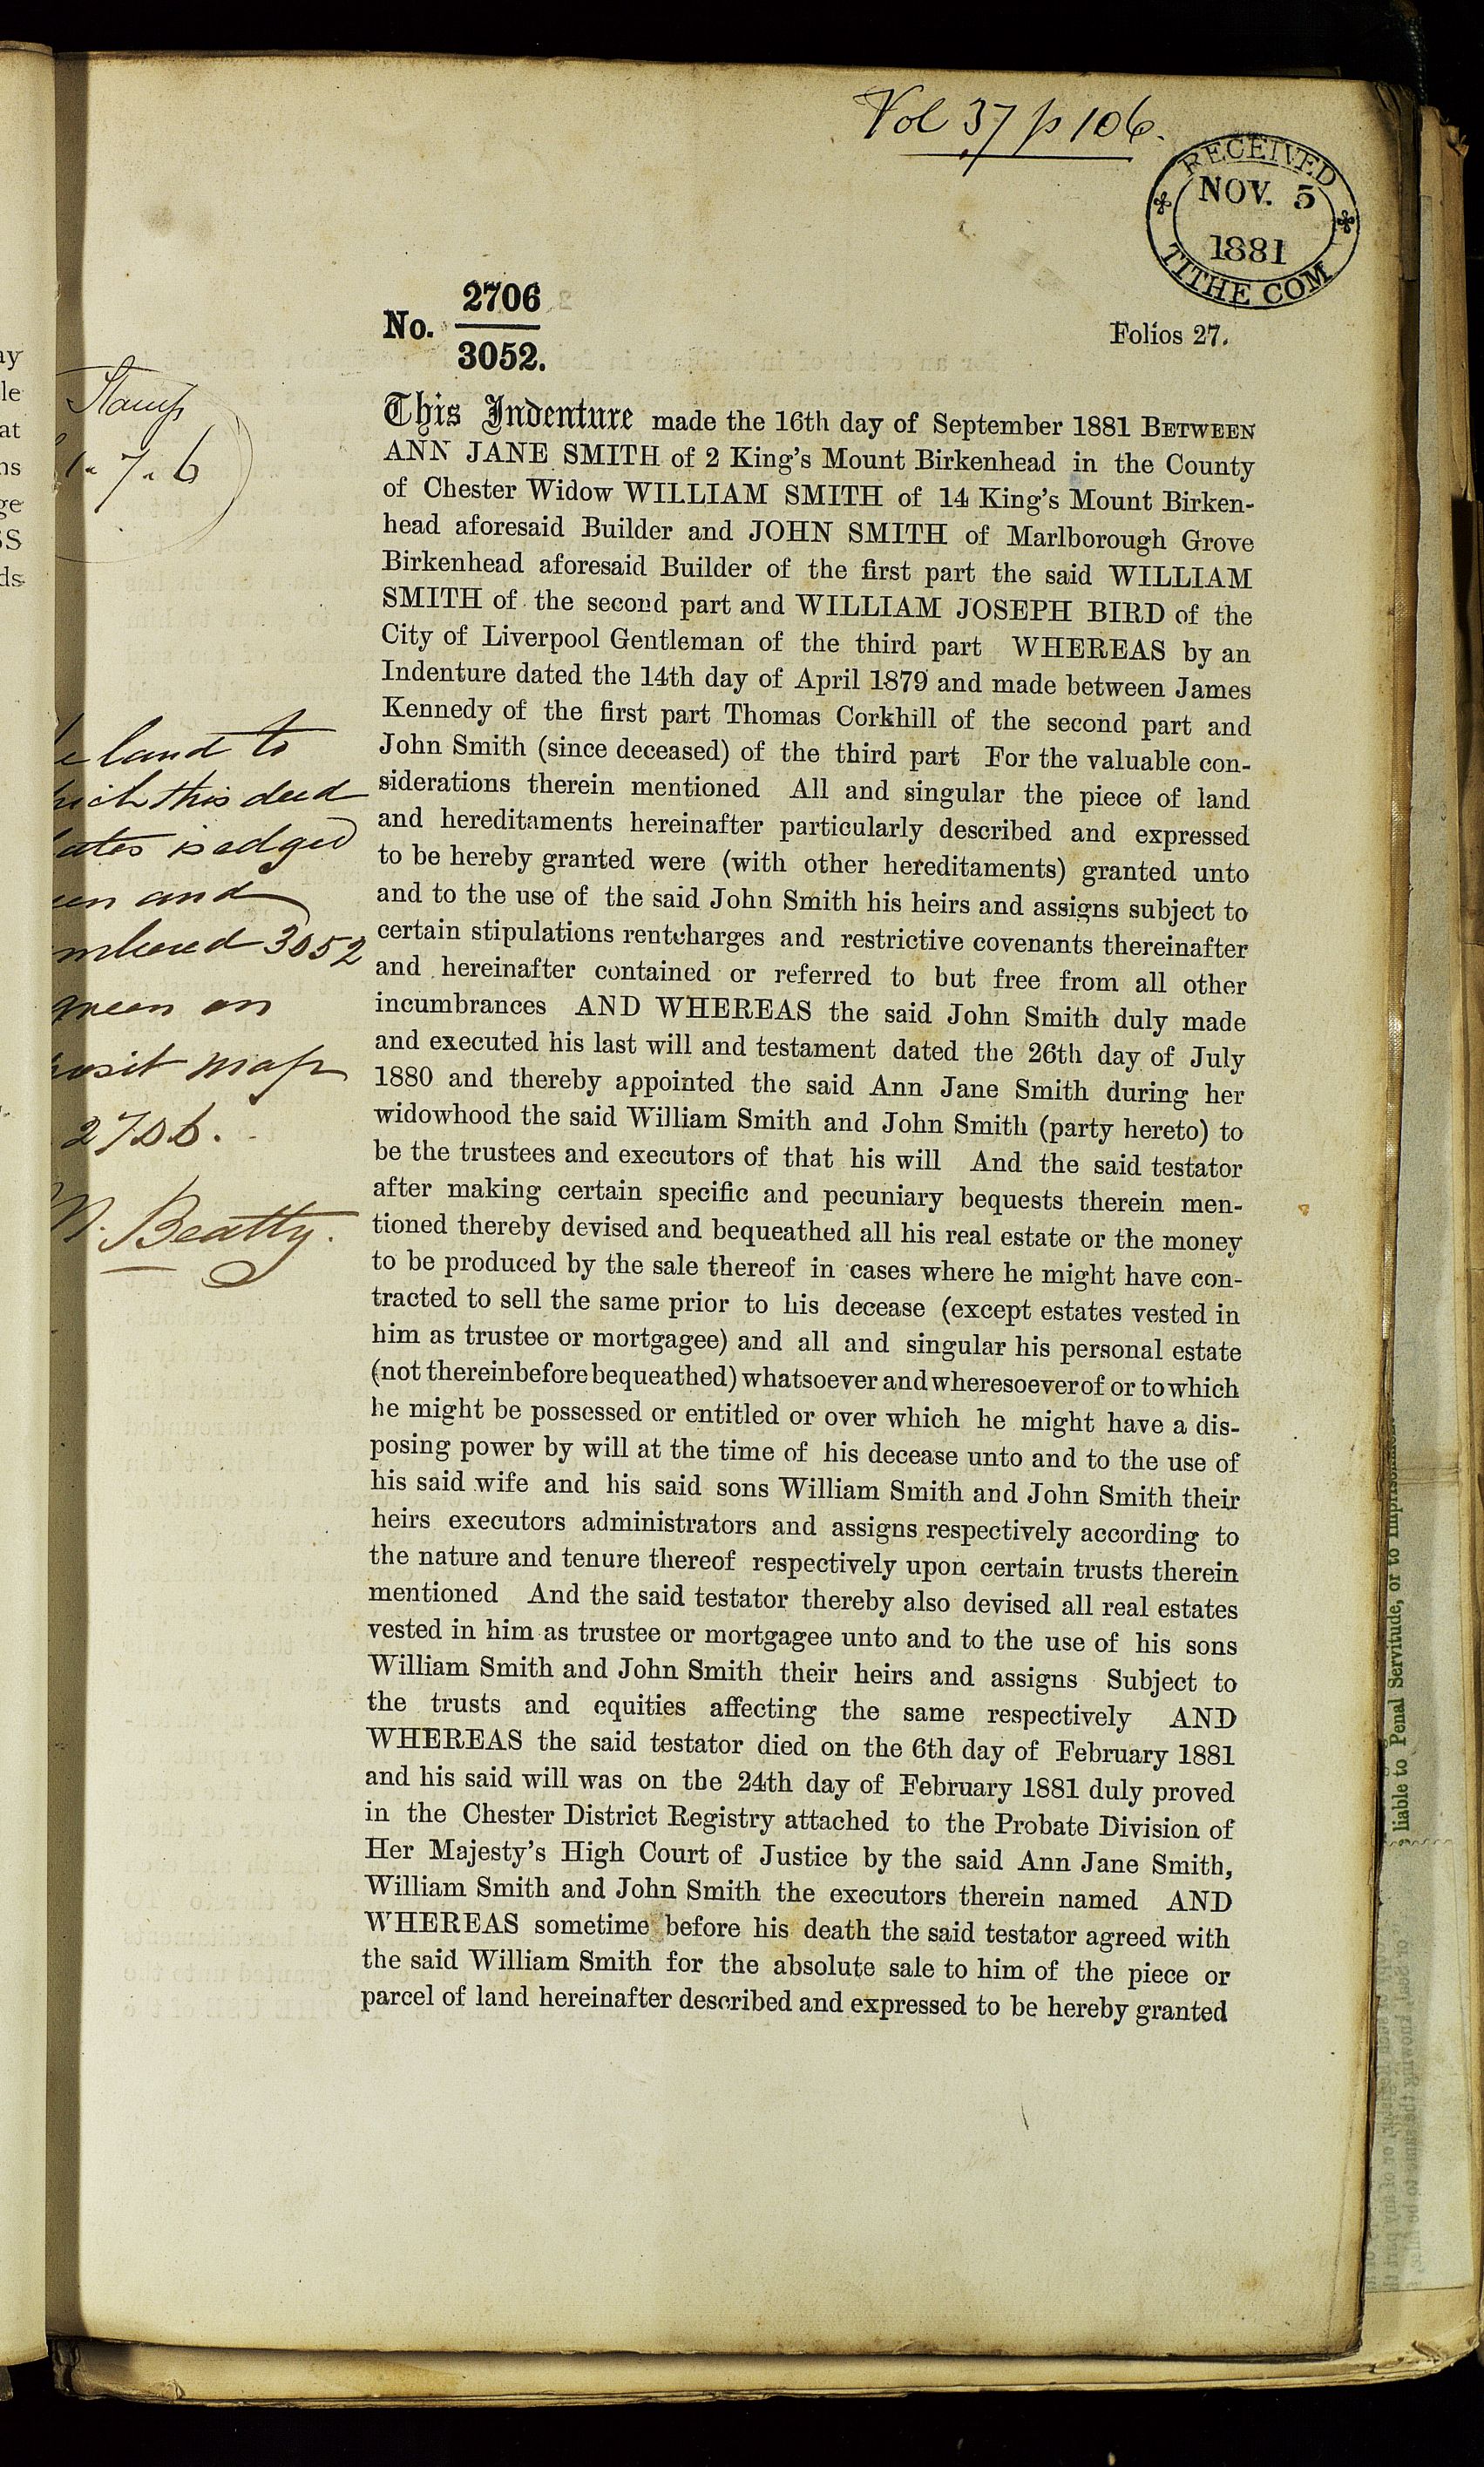 Vol 37 p 106.
RECEIVED
NOV. 5
1881
TITHE COM
No. 2706
3052.
Folios 27.
Stamp
1-7-6
This Indenture made the 16th day of September 1881 BETWEEN
ANN JANE SMITH of 2 King's Mount Birkenhead in the County
of Chester Widow WILLIAM SMITH of 14 King's Mount Birken-
head aforesaid Builder and JOHN SMITH of Marlborough Grove
Birkenhead aforesaid Builder of the first part the said WILLIAM
SMITH of the second part and WILLIAM JOSEPH BIRD of the
City of Liverpool Gentleman of the third part WHEREAS by an
Indenture dated the 14th day of April 1879 and made between James
Kennedy of the first part Thomas Corkhill of the second part and
John Smith (since deceased) of the third part For the valuable con-
siderations therein mentioned All and singular the piece of land
and hereditaments hereinafter particularly described and expressed
to be hereby granted were (with other hereditaments) granted unto
and to the use of the said John Smith his heirs and assigns subject to
certain stipulations rentcharges and restrictive covenants thereinafter
and hereinafter contained or referred to but free from all other
incumbrances AND WHEREAS the said John Smith duly made
and executed his last will and testament dated the 26th day of July
1880 and thereby appointed the said Ann Jane Smith during her
widowhood the said William Smith and John Smith (party hereto) to
be the trustees and executors of that his will And the said testator
after making certain specific and pecuniary bequests therein men-
tioned thereby devised and bequeathed all his real estate or the money
to be produced by the sale thereof in cases where he might have con-
tracted to sell the same prior to his decease (except estates vested in
him as trustee or mortgagee) and all and singular his personal estate
(not thereinbefore bequeathed) whatsoever and wheresoever of or to which
he might be possessed or entitled or over which he might have a dis-
posing power by will at the time of his decease unto and to the use of
his said wife and his said sons William Smith and John Smith their
heirs executors administrators and assigns respectively according to
the nature and tenure thereof respectively upon certain trusts therein
mentioned And the said testator thereby also devised all real estates
vested in him as trustee or mortgagee unto and to the use of his sons
William Smith and John Smith their heirs and assigns Subject to
the trusts and equities affecting the same respectively AND
WHEREAS the said testator died on the 6th day of February 1881
and his said will was on the 24th day of February 1881 duly proved
in the Chester District Registry attached to the Probate Division of
Her Majesty's High Court of Justice by the said Ann Jane Smith,
William Smith and John Smith the executors therein named AND
WHEREAS sometime before his death the said testator agreed with
the said William Smith for the absolute sale to him of the piece or
parcel of land hereinafter described and expressed to be hereby granted
land to
this deed
is edged
and
3052
green on
map
2706.
Beatty.
liable to Penal Servitude, or to